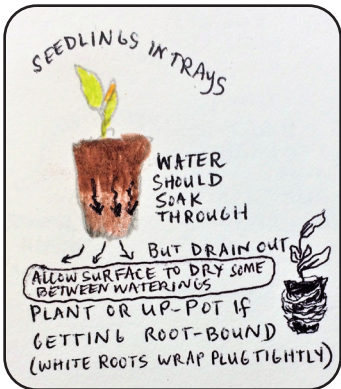 SEEDLINGS IN TRAYS
WATER
SHOULD
SOAK
THROUGH
BUT DRAIN OUT
ALLOW SURFACE TO DRY SOME
BETWEEN WATERINGS
PLANT OR UP-POT IF
GETTING ROOT-BOUND
(WHITE ROOTS WRAP PLUG TIGHTLY)